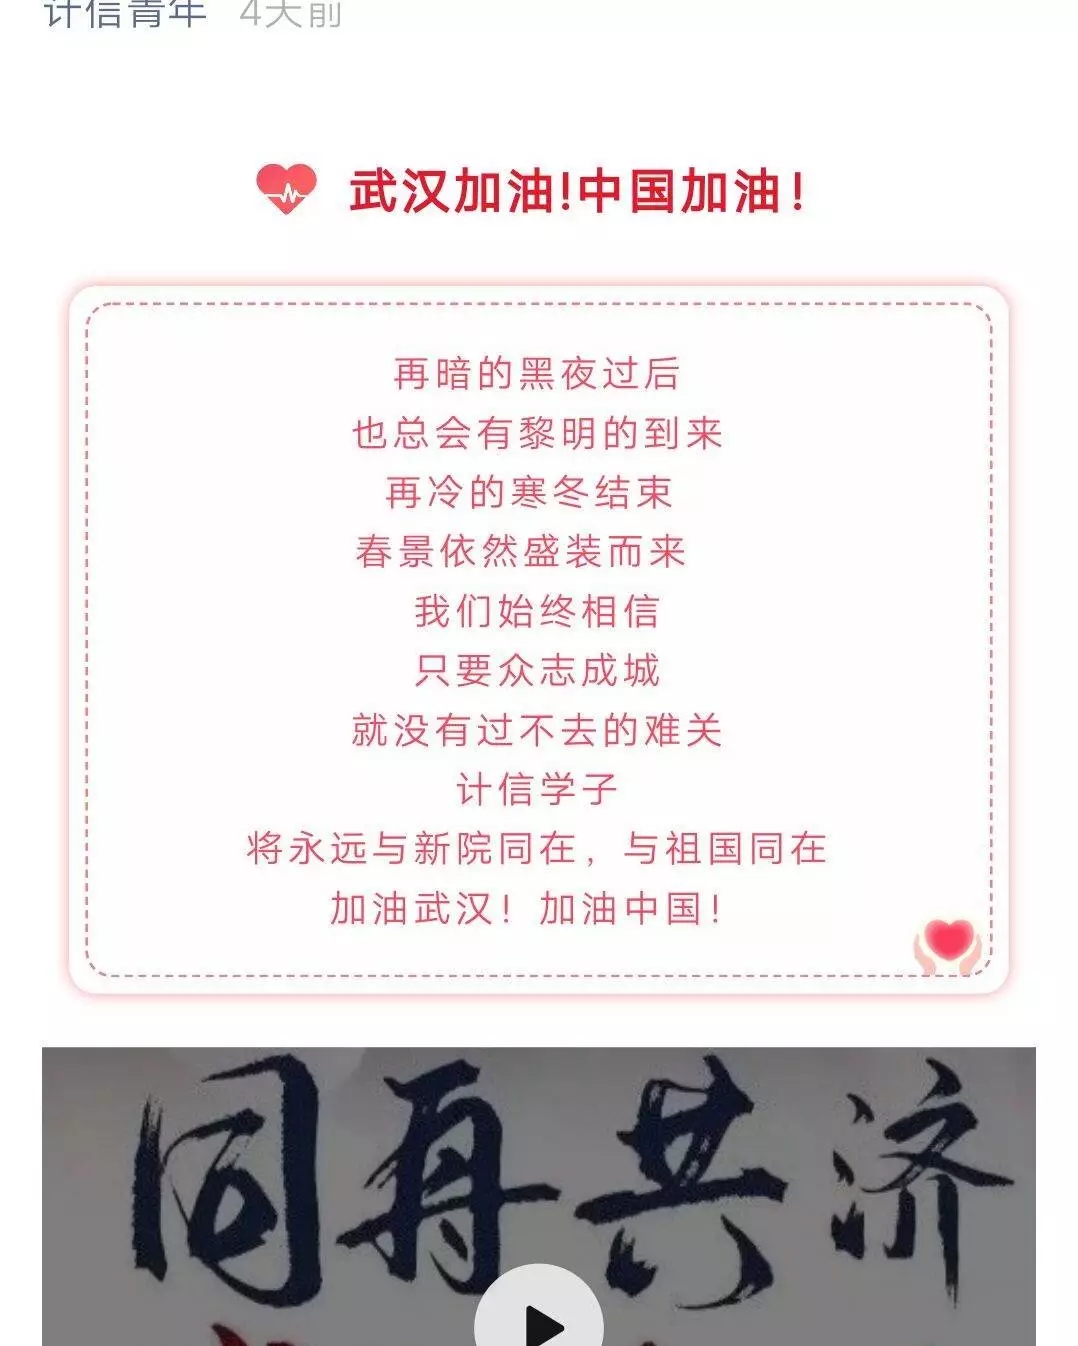 计信青年 4天前
武汉加油!中国加油!
再暗的黑夜过后
也总会有黎明的到来
再冷的寒冬结束
春景依然盛装而来
我们始终相信
只要众志成城
就没有过不去的难关
计信学子
将永远与新院同在，与祖国同在
加油武汉！加油中国！
同再共济